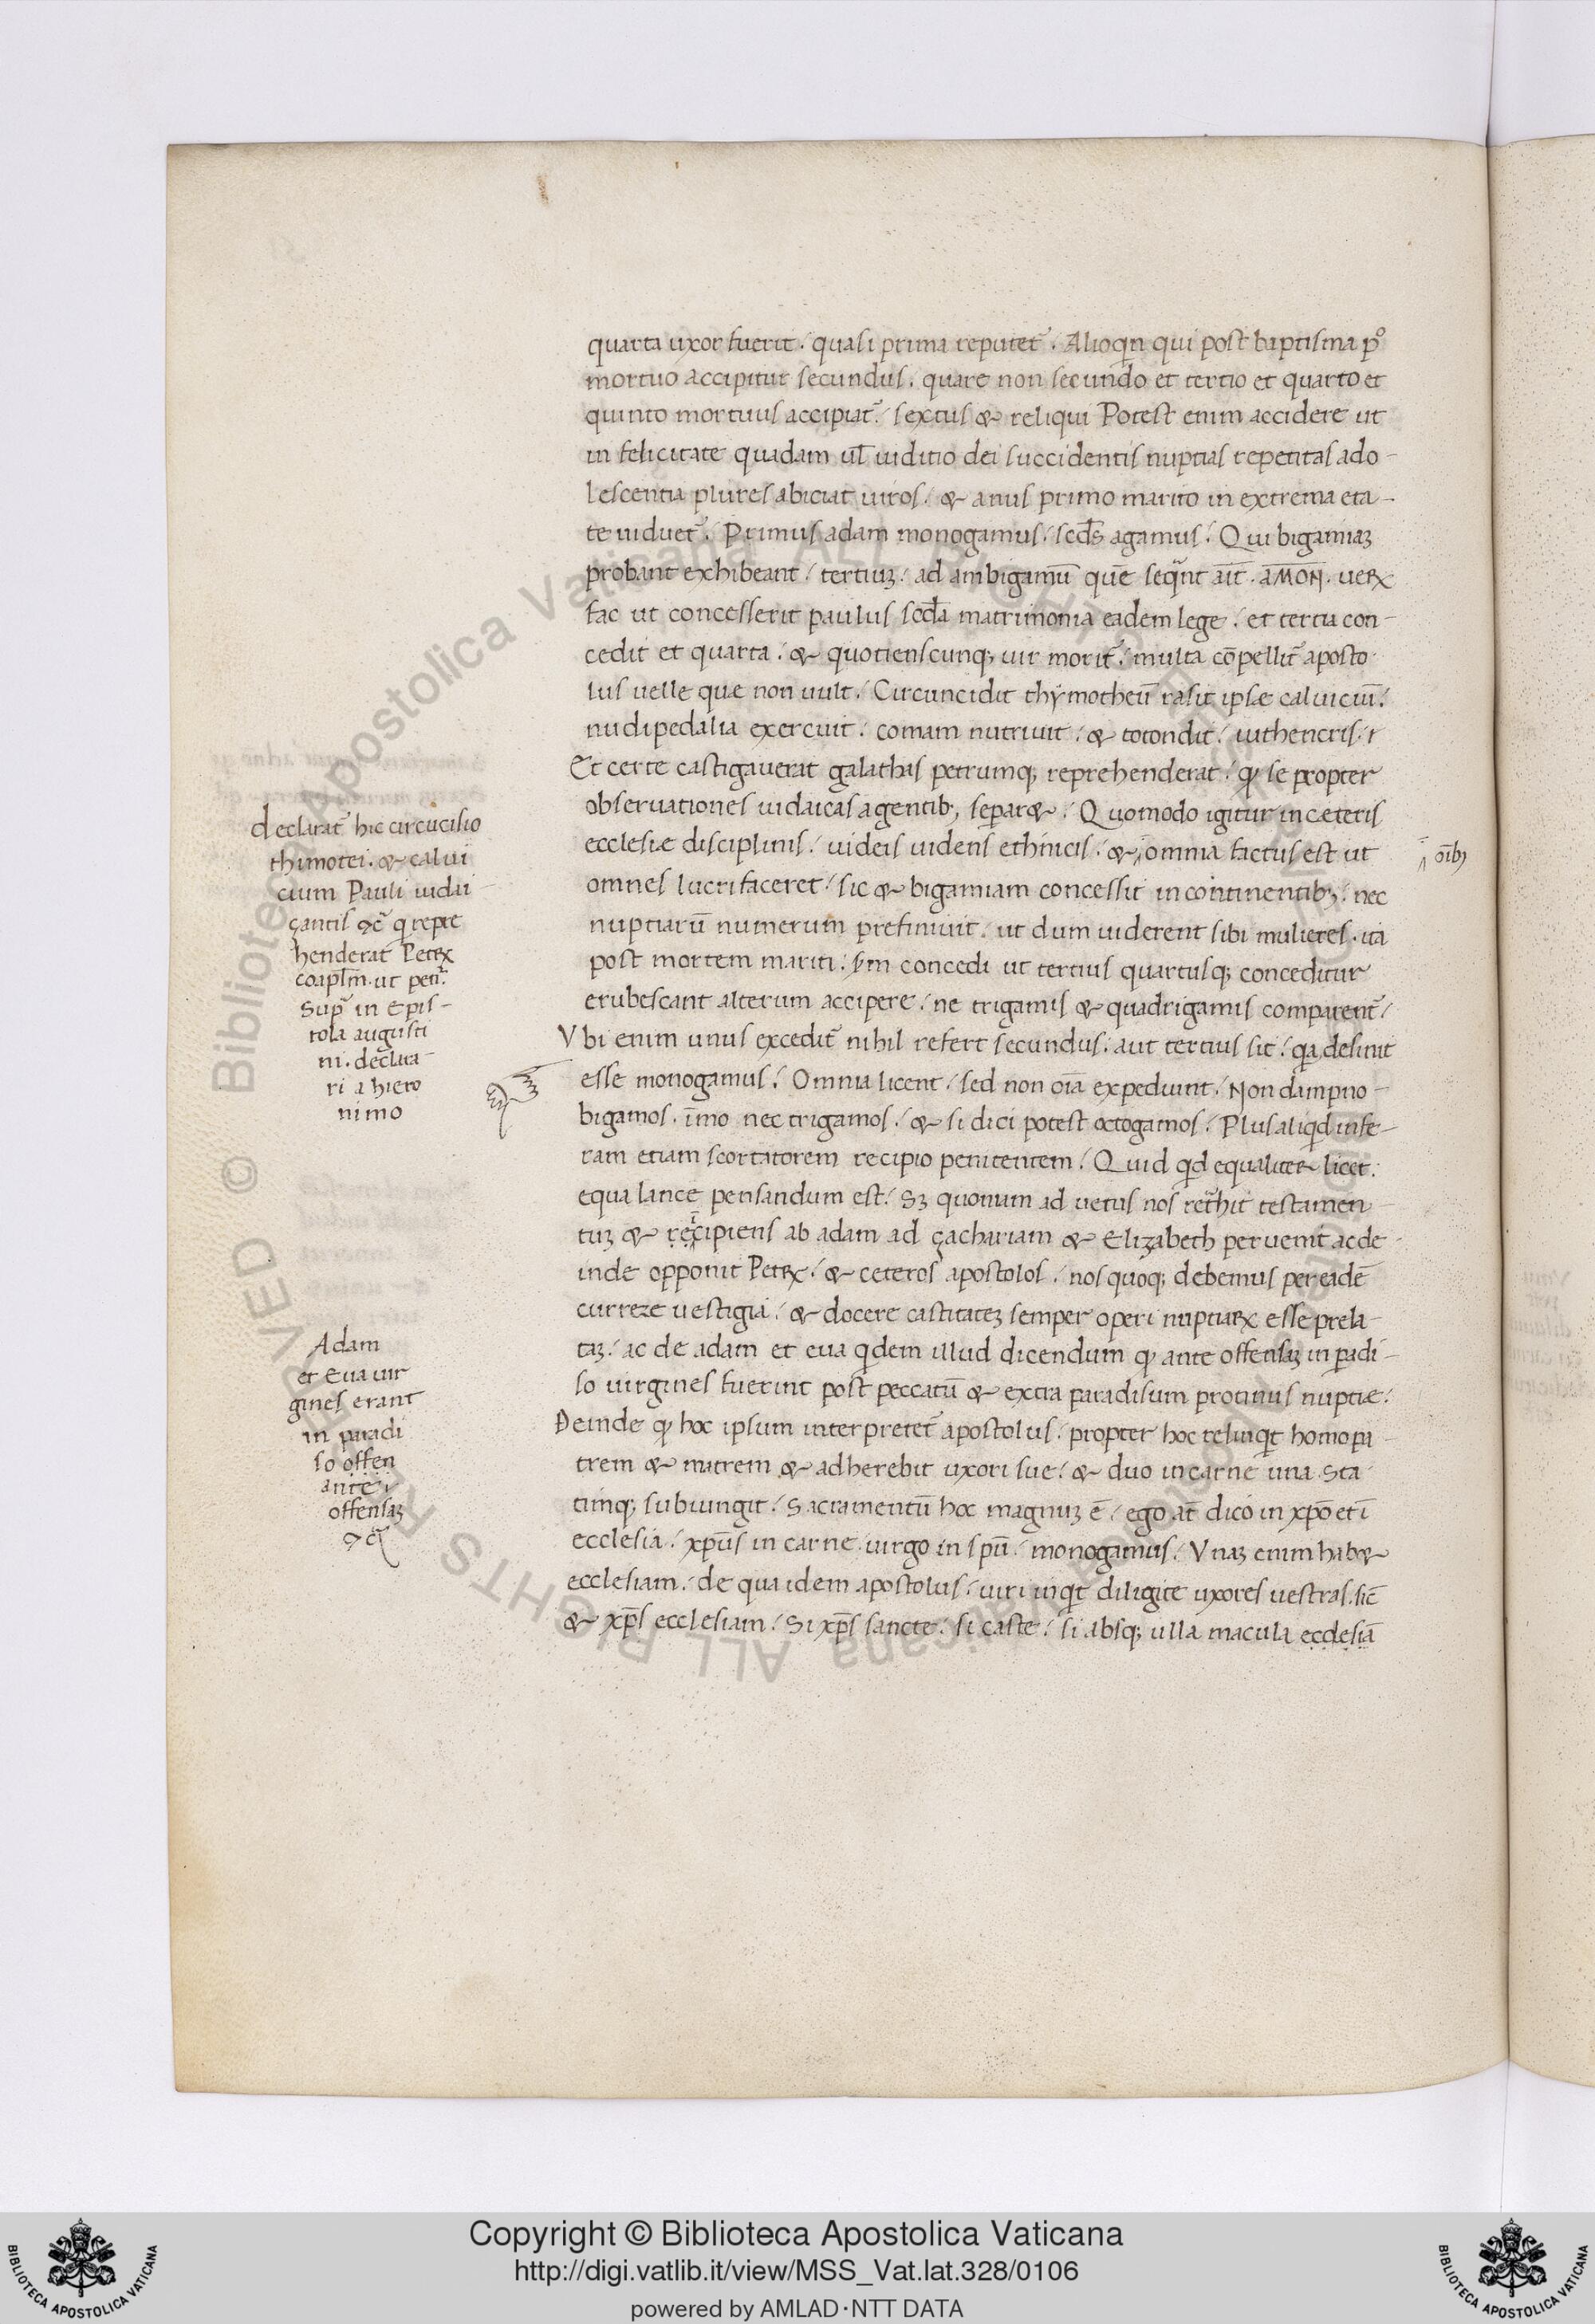 quarta uxor fuerit. quasi prima reputet̃. Alioqn qui post baptisma p̊
mortuo accipitur secundus. quare non secundo et tertio et quarto et
quinto mortuus accipiat̃. sextus & reliqui Potest enim accidere ut
in felicitate quadam ul̄ iuditio dei succidentis nuptias repetitas ado-
lescentia plures abiciat uiros. & anus primo marito in extrema eta-
te uiduet̃. Primus adam monogamus. scd̄s agamus. Qui bigamiaꝫ
probant exhibeant. tertiuꝫ. ad ambigamū quē seqnt ait. aMON. ueꝝ
fac ut concesserit paulus scd̄a matrimonia eadem lege. et tertia con-
cedit et quarta. & quotienscunqꝫ uir morit̃. multa cōpellit̃ aposto
lus uelle que non uult. Circuncidit thymotheū rasit ipse caluiciū.
nudipedalia exercuit. comam nutriuit. & totondit. in thencris.
Et certe castigauerat galathas petrumqꝫ reprehenderat. ꝙ se propter
obseruationes iudaicas agentibꝫ separ&. Quomodo igitur in ceteris
ecclesiæ disciplinis. uideis uidens ethnicis. & omnia factus est ut
omnes lucrifaceret. sic & bigamiam concessit incontinentibꝫ. nec
nuptiarū numerum prefiniuit. ut dum uiderent sibi mulieres. ita
post mortem mariti. sm concedi ut tertius quartusqꝫ conceditur
erubescant alterum accipere. ne trigamis & quadrigamis comparent̃.
Vbi enim unus excedit̃ nihil refert secundus. aut tertius sit. qa desinit
esse monogamus. Omnia licent. sed non oīa expediunt. Non dampno-
bigamos. īmo nec trigamos. & si dici potest octogamos. Plus aliqd infe-
ram etiam scortatorem recipio penitentem. Quid qd equaliter licet.
equa lance pensandum est. Sꝫ quoniam ad uetus nos ret̃hit testamen-
tuꝫ & recipiens ab adam ad çachariam & Elizabeth peruenit ac de-
inde opponit Petꝝ. & ceteros apostolos. nos quoqꝫ debemus per eadē
currere uestigia. & docere castitateꝫ semper operi nuptiaꝝ esse prela-
taꝫ. ac de adam et eua qdem illud dicendum ꝙ ante offensaꝫ in paradi-
so uirgines fuerint post peccatū & extra paradisum protinus nuptiæ.
Deinde ꝙ hoc ipsum interpretet̃ apostolus. propter hoc relinqt homo pa-
trem & matrem & adherebit uxori sue. & duo in carne una. Sta-
timqꝫ subiungit. Sacramentū hoc magnuꝫ ē. ego at̄ dico in xp̄o et ī
ecclesia. xp̄us in carne. uirgo in spū. monogamus. Vnaꝫ enim hab&
ecclesiam. de qua idem apostolus. uiri inqt diligite uxores uestras. sic̄
& xp̄s ecclesiam. Si xp̄s sancte. si caste. si absqꝫ ulla macula ecclesiā
ī oībꝫ
declarat̃ hic circūcisio
thimotei. & calui
cium Pauli iudai-
çantis &c̃ q repre
henderat Petꝝ
coapl̄m. ut pen̄.
Sup̃ in Epis-
tola augusti
ni. declara-
ri a hiero
nimo
Adam
et Eua uir
gines erant
in paradi
so offen
ante
offensaꝫ
&c̃
Copyright © Biblioteca Apostolica Vaticana
http://digi.vatlib.it/view/MSS_Vat.lat.328/0106
powered by AMLAD·NTT DATA
BIBLIOTECA APOSTOLICA VATICANA
BIBLIOTECA APOSTOLICA VATICANA